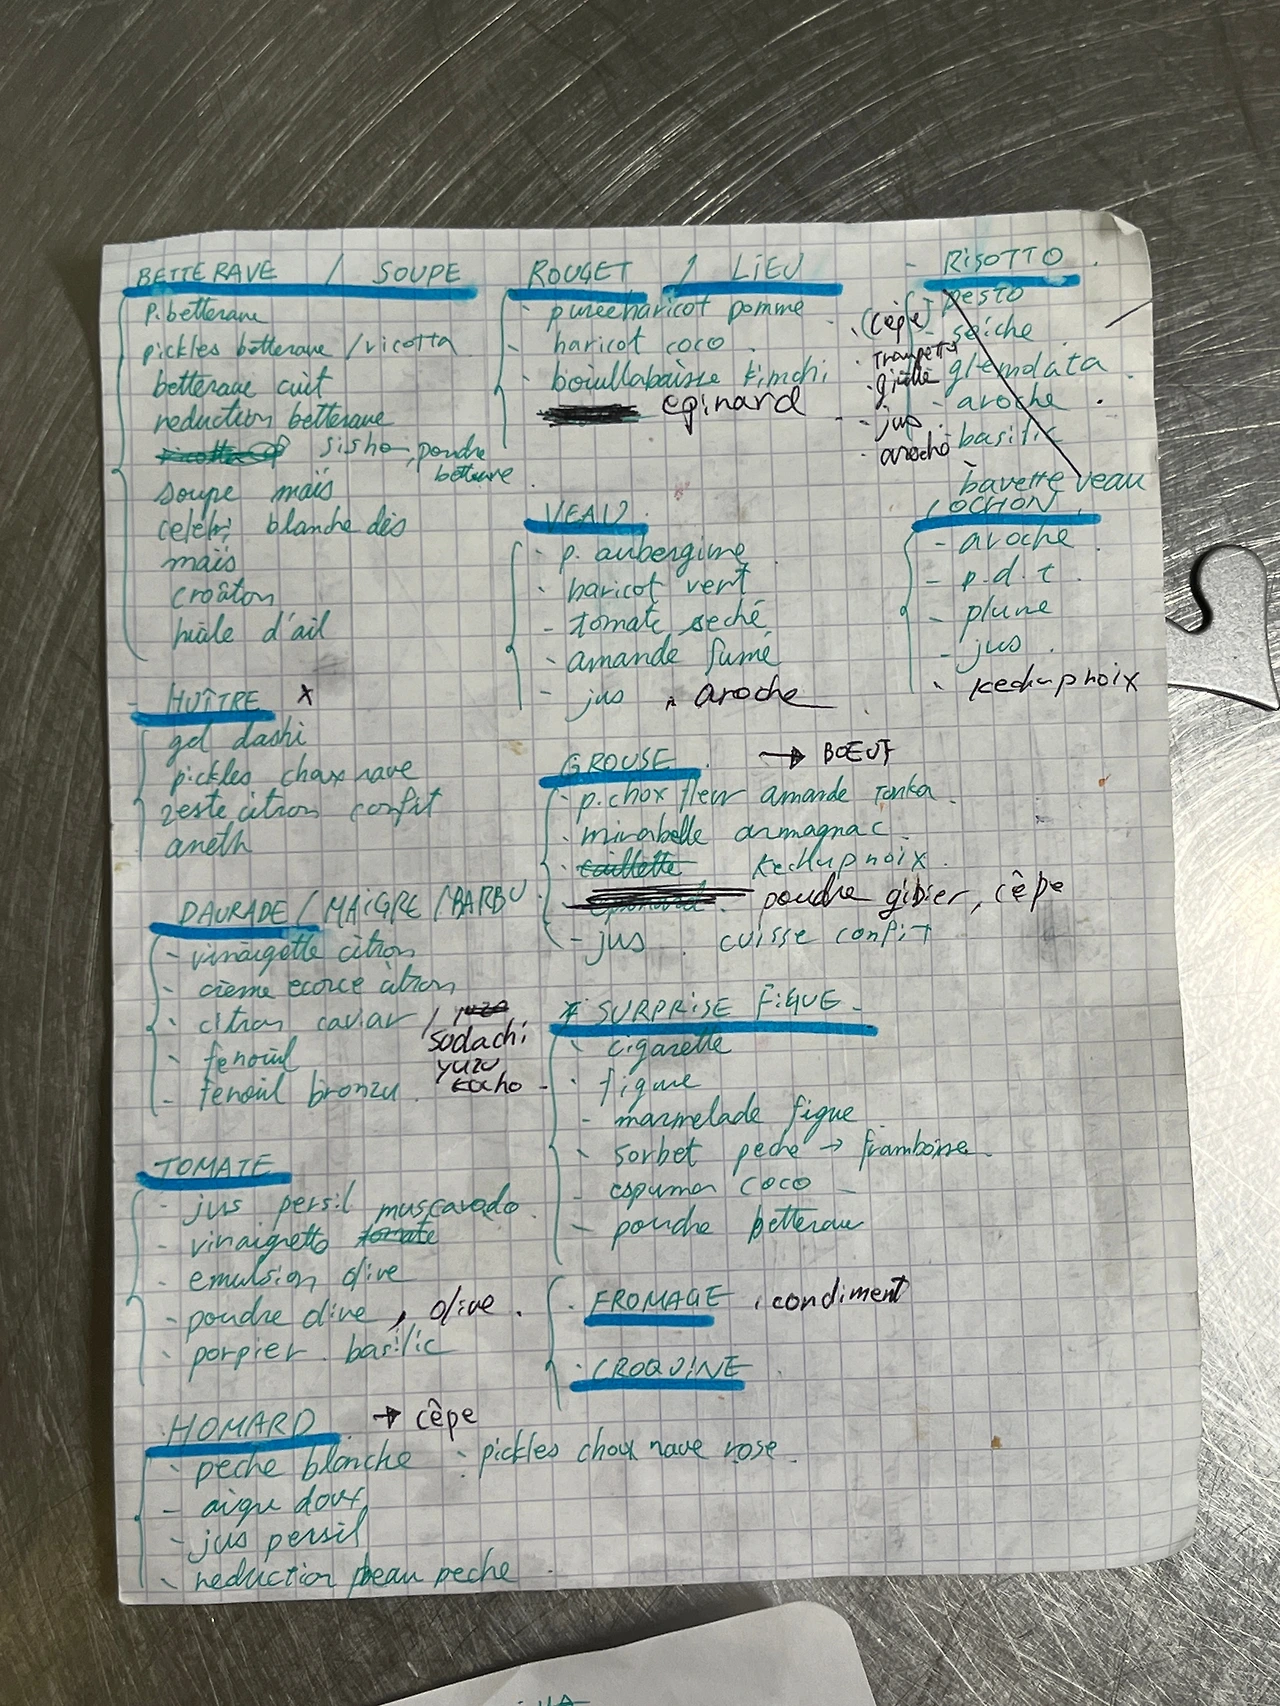 BETTERAVE / SOUPE
P. betterave
pickles betterave / ricotta
betterave cuit
reduction betterave
sisho, poudre
betterave
soupe maïs
celeri blanche dès
maïs
croûton
huile d'ail
- HUÎTRE x
gel dashi
pickles chox rave
zeste citron confit
aneth
DAURADE / MAIGRE / BARBU
- vinaigette citron
- creme ecorce citron
- citron caviar /
sudachi
- fenouil
yuzu
kocho
- fenouil bronzu
TOMATE
- jus persil muscavado
- vinaigrette tomate
- emulsion olive
- poudre olive, olive.
- porpier basilic
HOMARD → cêpe
- peche blanche - pickles choux rave rose
- aigre doux
- jus persil
- reduction peau peche
ROUGET / LIEU
- puree haricot pomme
- haricot coco
- boiullabaisse kimchi
epinard
VEAU
- p. aubergine
- haricot vert
- tomate seché
- amande fumé
- jus . aroche
GROUSE → BOEUF
- p. chox fleur amande tonka
- mirabelle armagnac
- caillette kechup noix
poudre gibier, cêpe
- jus . cuisse confit
SURPRISE FIGUE
- cigarette
- figue
- marmelade figue
- sorbet peche → framboise
- espuma coco
- poudre betterave
- FROMAGE , condiment
- CROQUINE
- RISOTTO
pesto
(cêpe)
- seiche
. trompette
. girolle
glemolata
- aroche
- jus
- basilic
- aroche
bavette veau
COCHON
- aroche
- p.d.t
- plume
- jus
- kechup noix